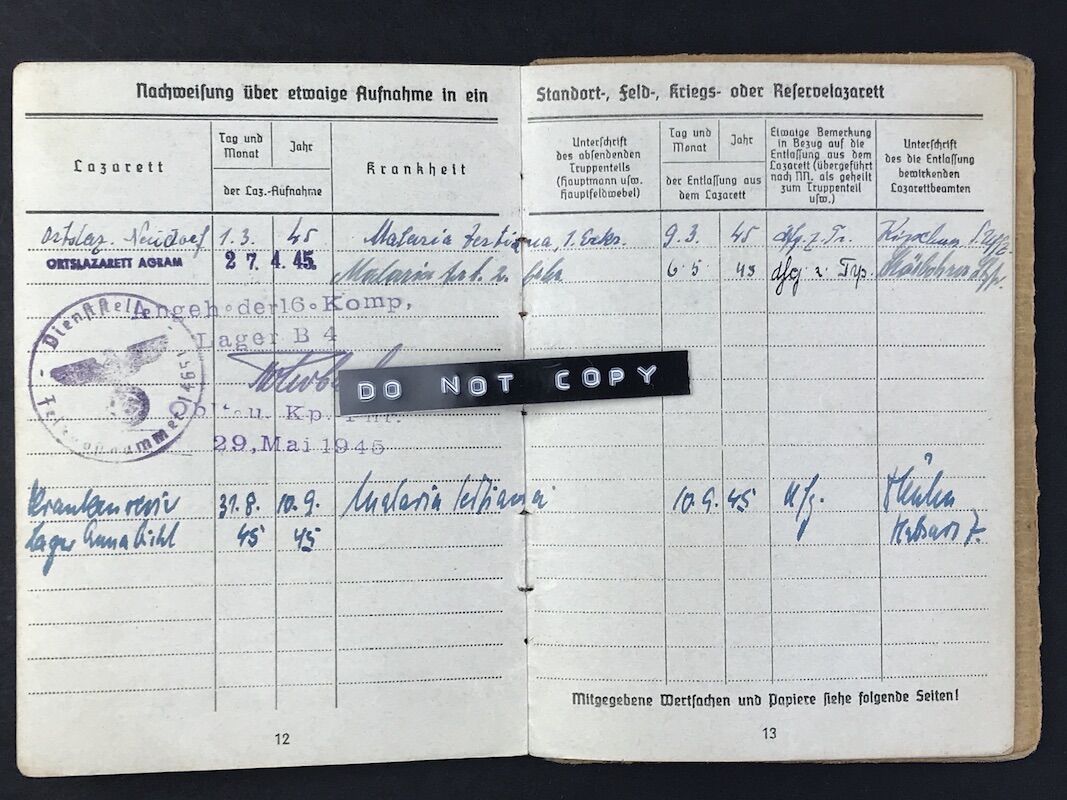 Nachweisung über etwaige Aufnahme in ein Standort-, Feld-, Kriegs- oder Reservelazarett
Lazarett
Tag und Monat
Jahr
der Laz.-Aufnahme
Krankheit
Unterschrift
des absendenden
Truppenteils
(Hauptmann usw.
Hauptfeldwebel)
Tag und Monat
Jahr
der Entlassung aus
dem Lazarett
Etwaige Bemerkung
in Bezug auf die
Entlassung aus dem
Lazarett (übergeführt
nach NN. als geheilt
zum Truppenteil
usw.)
Unterschrift
des die Entlassung
bewirkenden
Lazarettbeamten
Ortslaz. Neudorf 1.3. 45 Malaria tertiana, 9.3. 45 dfg. z. Tr.
ORTSLAZARETT AGRAM 2 7. 4. 45. Malaria 6.5 45 dfg z. Trp.
Angeh. der 16. Komp,
Lager B 4
Dienststelle
Feldpostnummer
DO NOT COPY
29, Mai 1945
Krankenrevier 31.8. 10.9. Malaria tertiana 10.9. 45
Lager Annabichl 45 45
Mitgegebene Wertsachen und Papiere siehe folgende Seiten!
12
13